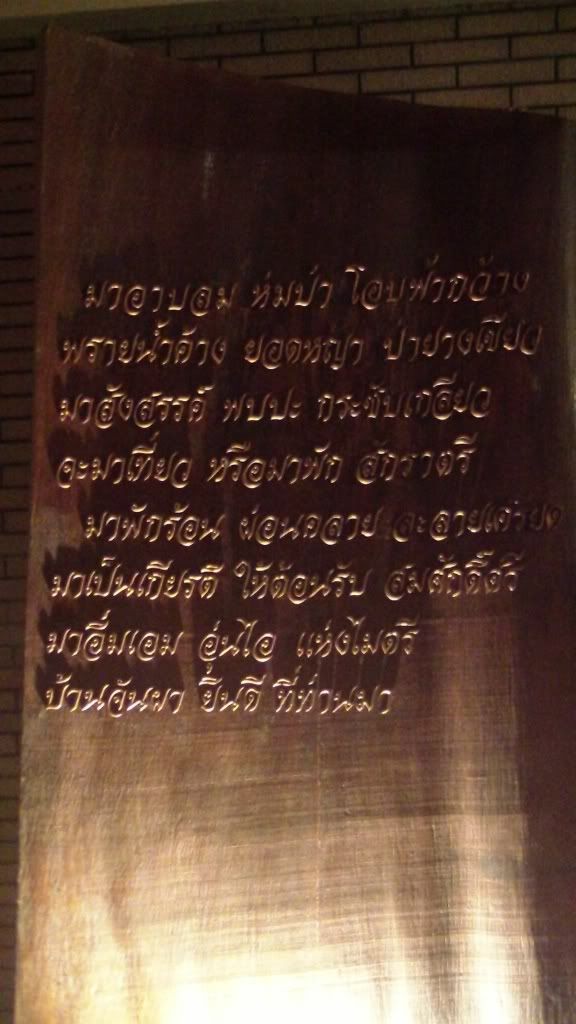 มาอาบลม ห่มป่า โอบฟ้ากว้าง
พรายน้ำค้าง ยอดหญ้า ป่ายางเขียว
มาสังสรรค์ พบปะ กระชับเกลียว
จะมาเที่ยว หรือมาพัก สักราตรี
มาพักร้อน ผ่อนคลาย ละลายเครียด
มาเป็นเกียรติ ให้ต้อนรับ สมศักดิ์ศรี
มาอิ่มเอม อุ่นไอ แห่งไมตรี
บ้านจันผา ยินดี ที่ท่านมา